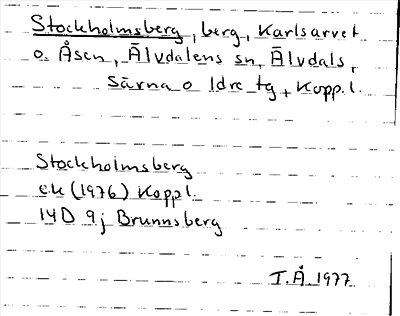 Stockholmsberg, berg, Karlsarvet
o. Åsen, Älvdalens sn, Älvdals,
Särna o Idre tg, Kopp.l.
Stockholmsberg
ek (1976) Koppl.
14D 9j Brunnsberg
I.Å. 1977